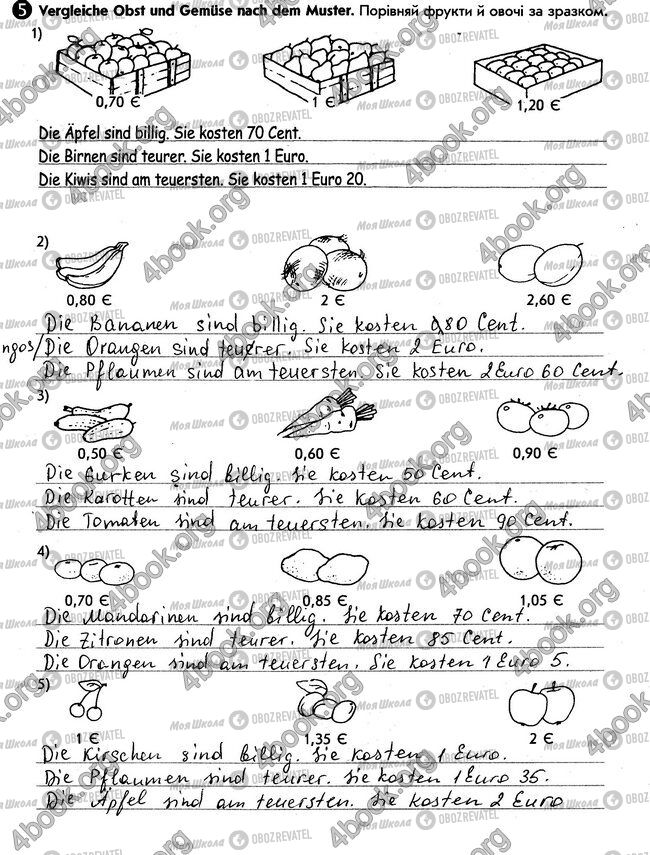 5 Vergleiche Obst und Gemüse nach dem Muster. Порівняй фрукти й овочі за зразком.
1)
0,70 € 1 € 1,20 €
Die Äpfel sind billig. Sie kosten 70 Cent.
Die Birnen sind teurer. Sie kosten 1 Euro.
Die Kiwis sind am teuersten. Sie kosten 1 Euro 20.
2)
0,80 € 2 € 2,60 €
Die Bananen sind billig. Sie kosten 080 Cent.
ngos/Die Orangen sind teurer. Sie kosten 2 Euro.
Die Pflaumen sind am teuersten. Sie kosten 2 Euro 60 Cent.
3)
0,50 € 0,60 € 0,90 €
Die Gurken sind billig. Sie kosten 50 Cent.
Die Karotten sind teurer. Sie kosten 60 Cent.
Die Tomaten sind am teuersten. Sie kosten 90 Cent.
4)
0,70 € 0,85 € 1,05 €
Die Mandarinen sind billig. Sie kosten 70 Cent.
Die Zitronen sind teurer. Sie kosten 85 Cent.
Die Orangen sind am teuersten. Sie kosten 1 Euro 5.
5)
1 € 1,35 € 2 €
Die Kirschen sind billig. Sie kosten 1 Euro.
Die Pflaumen sind teurer. Sie kosten 1 Euro 35.
Die Äpfel sind am teuersten. Sie kosten 2 Euro
4book.org
Моя Школа OBOZREVATEL